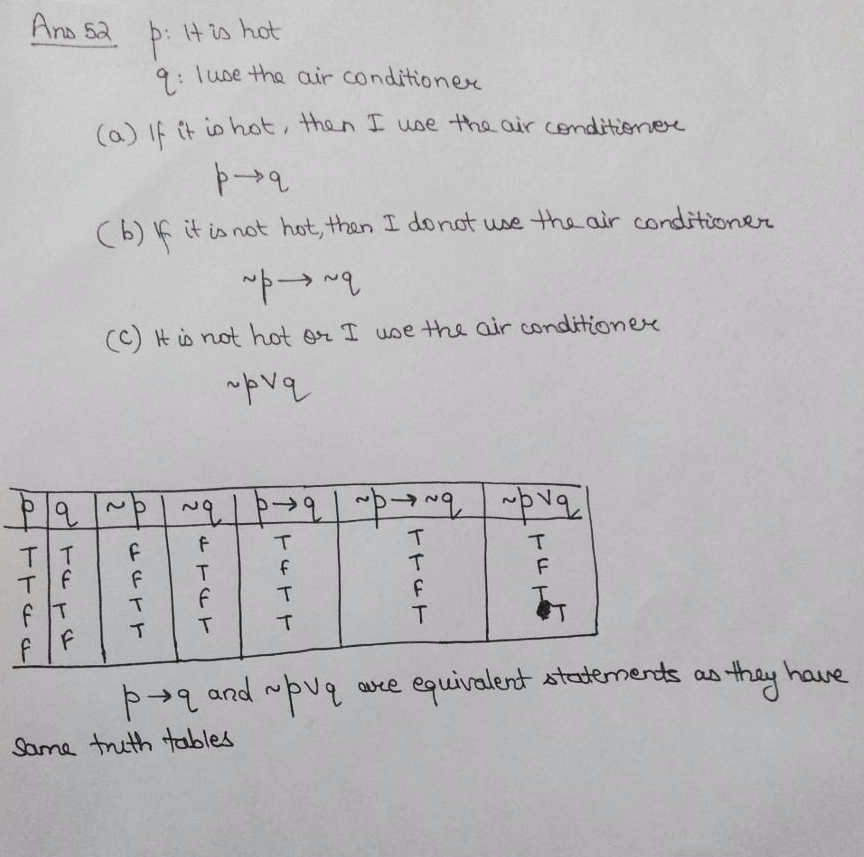 Ans 52 p: It is hot
q: I use the air conditioner
(a) If it is hot, then I use the air conditioner
p→q
(b) If it is not hot, then I do not use the air conditioner
~p→ ~q
(c) It is not hot or I use the air conditioner
~p∨q
p q ~p ~q p→q ~p→~q ~p∨q
T T F F T T T
T F F T F T F
F T T F T F T
F F T T T T T
p→q and ~p∨q are equivalent statements as they have
same truth tables